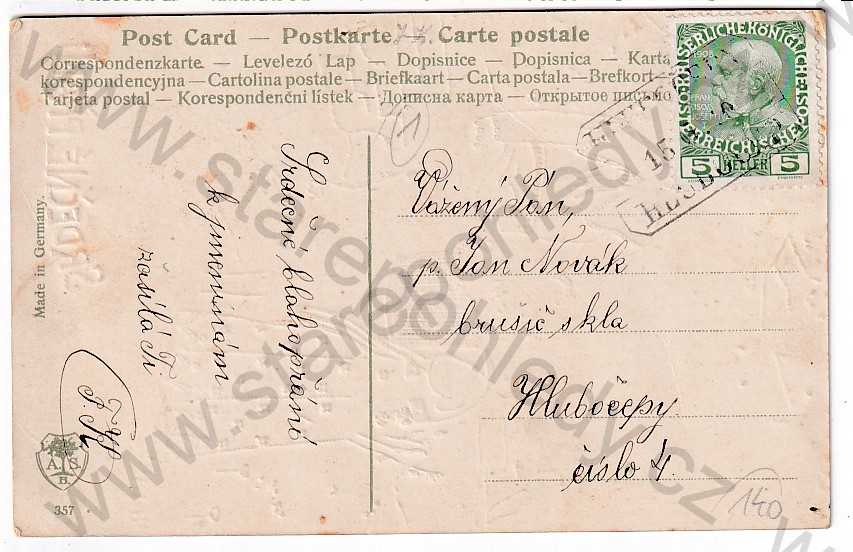 Post Card — Postkarte — Carte postale
Correspondenzkarte — Levelező Lap — Dopisnice — Dopisnica — Karta
korespondencyjna — Cartolina postale — Briefkaart — Carta postala — Brefkort
Tarjeta postal — Korespondenční lístek — Дописна карта — Открытое письмо
1908
KAISERLICHE KÖNIGLICHE
ÖSTERREICHISCHE
5 HELLER 5
15
HLUBOČEP
Srdečné blahopřání
k jmeninám
zasílá Ti
F. K
Vážený Pán,
p. Jan Novák
brusič skla
Hlubočepy
číslo 4.
Made in Germany.
A. S.
B.
357
140
www.starepohledy.cz